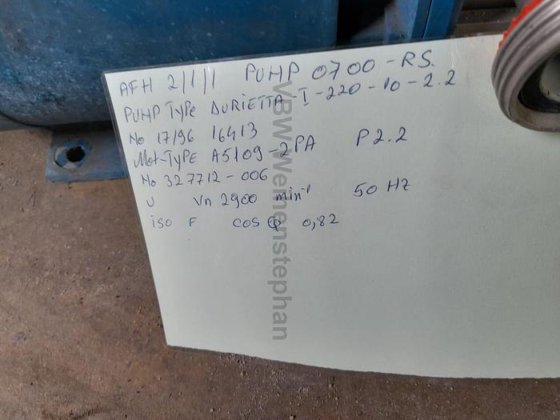 AFH 2/1/1 PUMP 0700-RS.
PUMP TYPE DURIETTA-I-220-10-2.2
No 17196 16413
Mot-TYPE A5109-2PA P 2.2
No 327712-006
U Vn 2900 min⁻¹ 50 HZ
iso F cos φ 0,82
VBWWeihenstephan